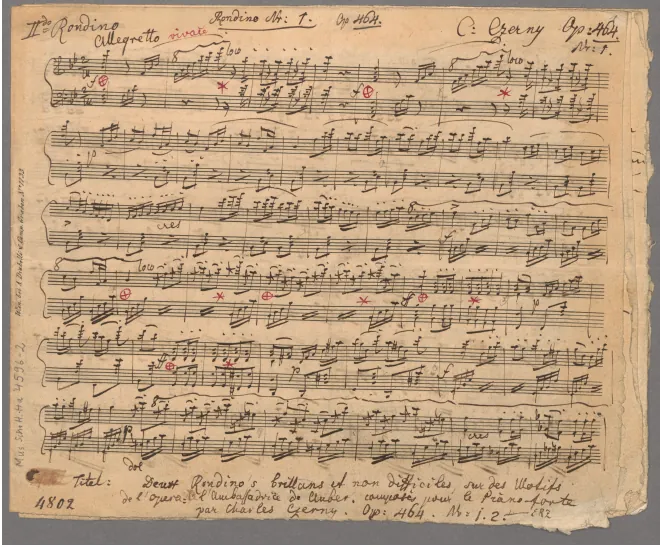 IIdo Rondino
Rondino Nr: 1. Op 464.
C: Czerny Op: 464.
Nr: 1.
Allegretto vivace
8 loco
8 loco
f
f
p
cres
8
8 loco
f
p
p
f
8
cres
dol
Titel: Deux Rondino's brillans et non difficiles, sur des Motifs
de l'opera: l'Ambassadrice de Auber, composés pour le Piano-forte
par Charles Czerny. Op: 464. Nr: 1. 2.
4802
Mus. Schl. H. Ha 4596-2